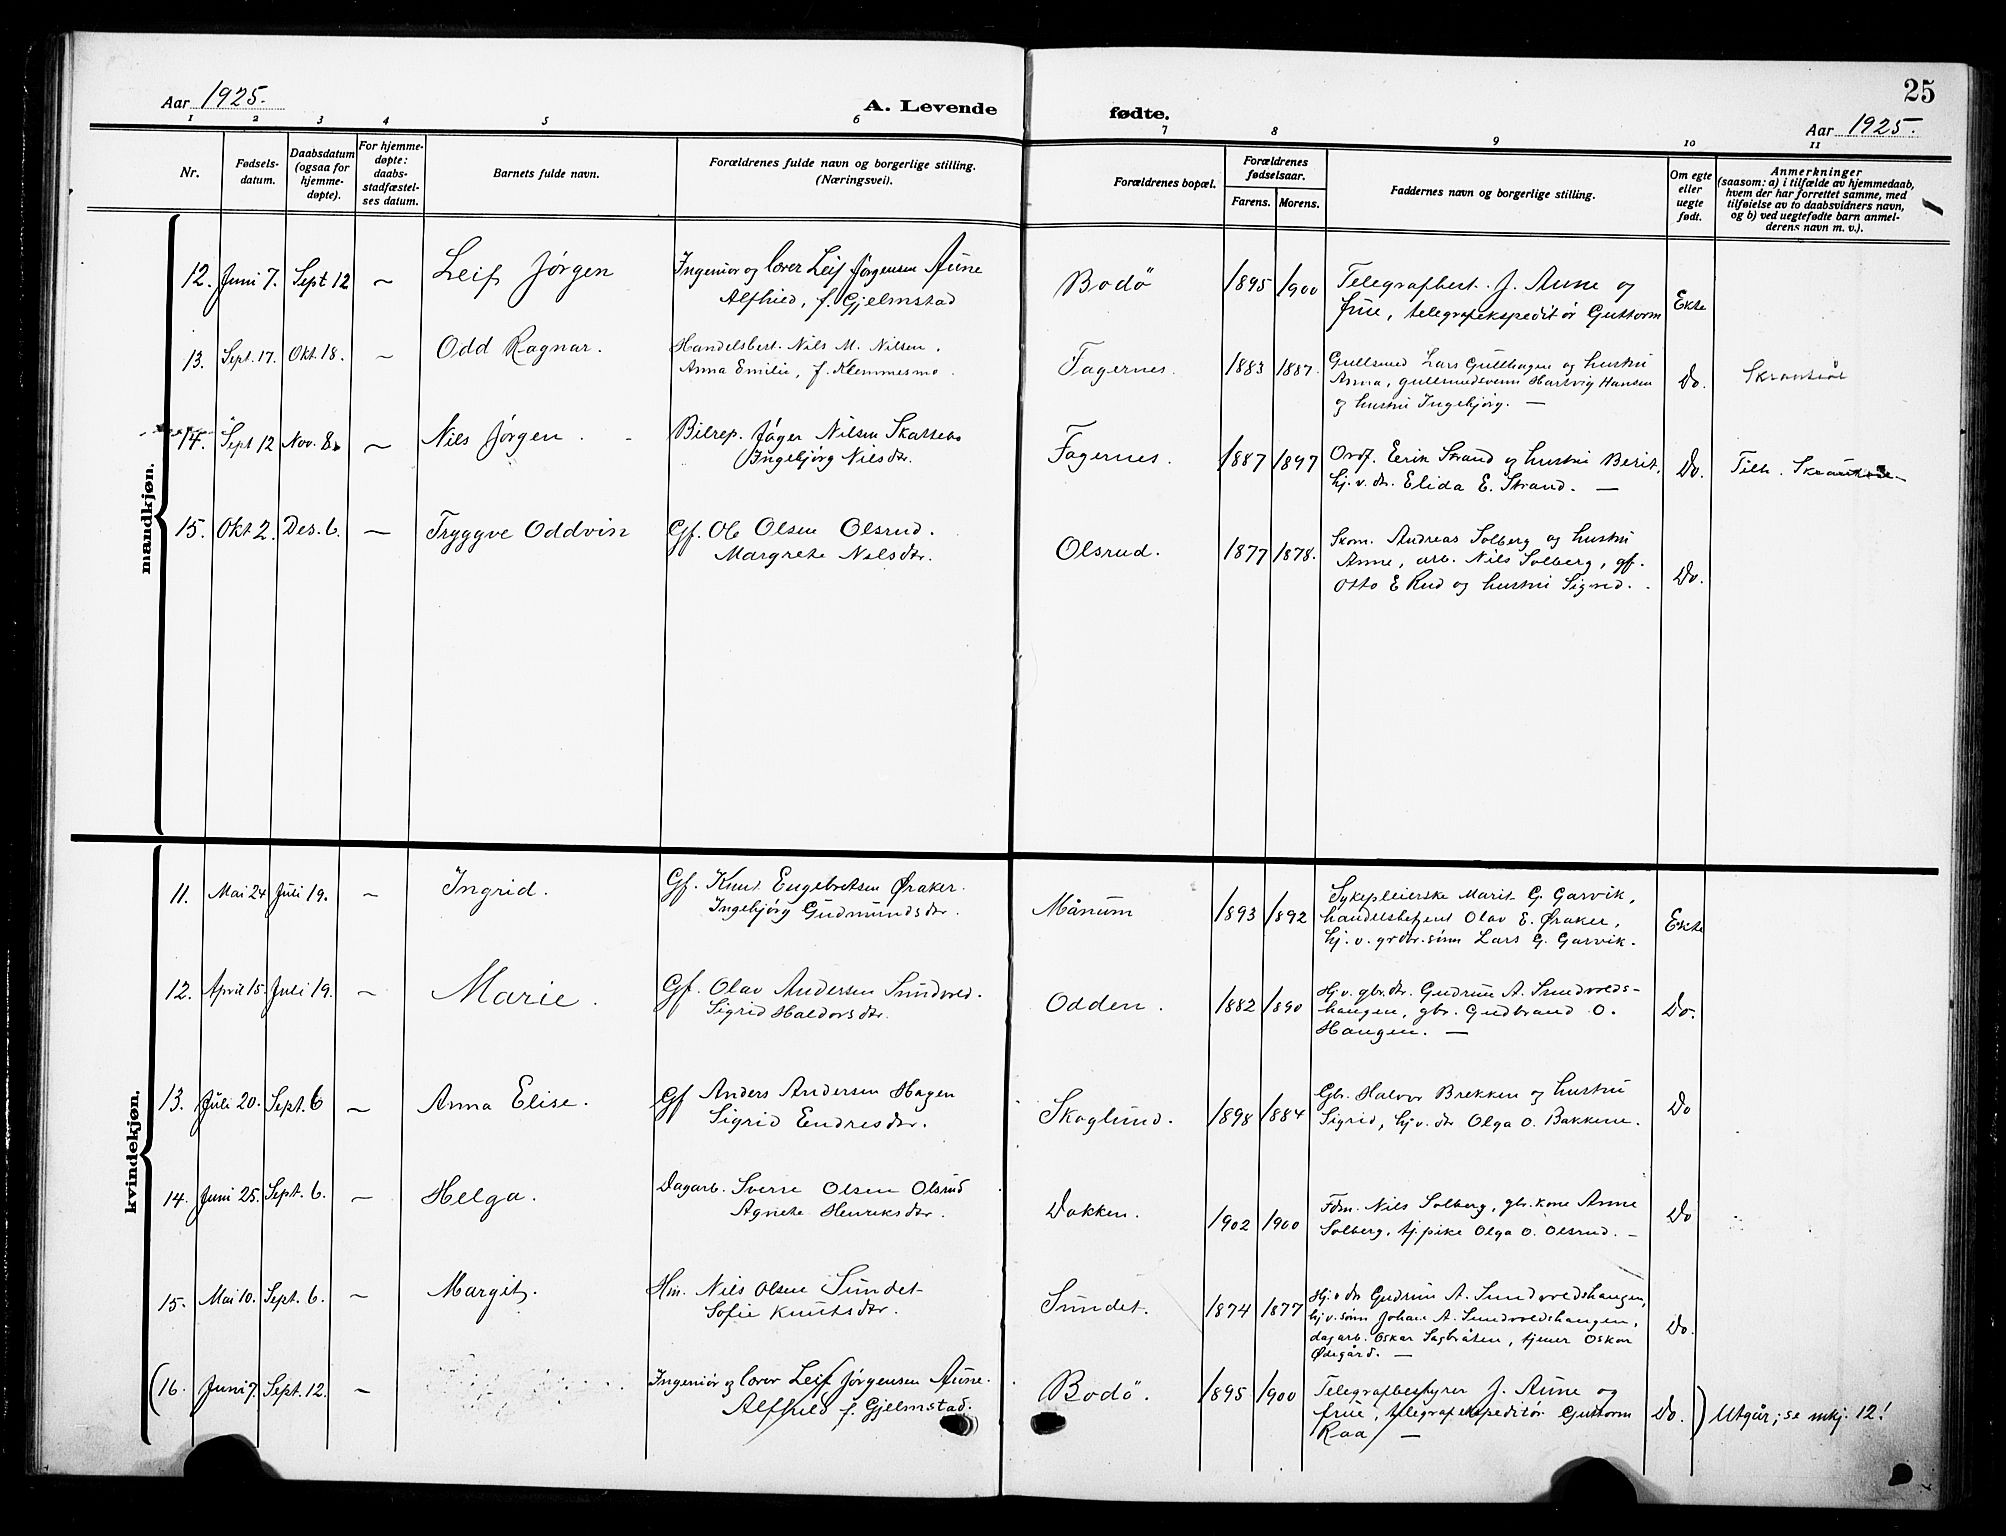 25
Aar 1925.
A. Levende
fødte.
Aar 1925.
1 2 3 4 5 6 7 8 9 10 11
Nr.
Fødsels-
datum.
Daabsdatum
(ogsaa for
hjemme-
døpte).
For hjemme-
døpte:
daabs-
stadfæstel-
ses datum.
Barnets fulde navn.
Forældrenes fulde navn og borgerlige stilling.
(Næringsvei).
Forældrenes bopæl.
Forældrenes
fødselsaar.
Farens. Morens.
Faddernes navn og borgerlige stilling.
Om egte
eller
uegte
født.
Anmerkninger
(saasom: a) i tilfælde av hjemmedaab,
hvem der har forrettet samme, med
tilføielse av to daabsvidners navn,
og b) ved uegtefødte barn anmel-
derens navn m. v.).
mandkjøn.
12. Juni 7. Sept 12 — Leif Jørgen
Ingeniør og lærer Leif Jørgensen Aune
Alfhild, f. Gjelmstad
Bodö 1895 1900
Telegrafbest. J. Aune og
frue, telegrafekspeditör Guttorm
Ekte
13. Sept. 17. Okt. 18. — Odd Ragnar.
Handelsbest. Nils M. Nilsen,
Anna Emilie, f. Klemmesmo
Fagernes. 1883 1887.
Gullsmed Lars Gullhagen og hustru
Anna, gullsmedsvenn Hartvig Hansen
og hustru Ingebjørg. —
Do.
14. Sept 12 Nov. 8. — Nils Jørgen.
Bilrep. Jøger Nilsen Skattebo
Ingebjørg Nilsdtr.
Fagernes. 1887 1897
Ordf. Eerik Strand og hustru Berit,
hj. v. dtr. Elida E. Strand. —
Do.
15. Okt 2. Des. 6. — Tryggve Oddvin
Gf. Ole Olsen Olsrud.
Margrete Nilsdtr.
Olsrud. 1877 1878.
Skom. Andreas Solberg og hustru
Anne, arb. Nils Solberg, gf.
Otto E Rud og hustru Sigrid.
Do.
kvindekjøn.
11. Mai 24 Juli 19. — Ingrid.
Gf. Knut Engebretsen Øraker.
Ingebjørg Gudmundsdtr.
Månum 1893 1892
Sykepleierske Marit G. Garvik,
handelsbetjent Olav E. Øraker,
hj. v. grdbr.sönn Lars G. Garvik.
Ekte
12. April 15. Juli 19. — Marie.
Gf. Olav Andersen Sundvold.
Sigrid Haldorsdtr.
Odden. 1882 1890
Hj. v. gbr.dtr. Gudrun A. Sundvolds-
haugen, gbr. Gudbrand O.
Haugen. —
Do.
13. Juli 20. Sept. 6 — Anna Elise.
Gf Anders Andersen Hagen
Sigrid Endresdtr.
Skoglund. 1898 1884
Gbr. Halvor Brekken og hustru
Sigrid, hj. v. dtr Olga O. Bakkene.
Do
14. Juni 25. Sept. 6. — Helga.
Dagarb. Sverre Olsen Olsrud
Agnete Henriksdtr.
Dokken. 1902 1900
Fdm. Nils Solberg, gbr.kone Anne
Solberg, tj.pike Olga O. Olsrud. —
Do
15. Mai 10. Sept. 6. — Margit.
Hm. Nils Olsen Sundet
Sofie Knutsdtr.
Sundet. 1874 1877
Hj. v dtr Gudrun A. Sundvoldshaugen,
hj. v. sönn Johan A. Sundvoldshaugen,
dagarb. Oskar Sagbråten, tjener Oskar
Ødegård. —
Do.
(16. Juni 7. Sept. 12. —
Ingeniör og lærer Leif Jørgensen Aune.
Alfhild f. Gjelmstad.
Bodö. 1895 1900
Telegrafbestyrer J. Aune og
frue, telegrafekspeditör Guttorm
Raa —
Do. ) Utgår; se mkj. 12!